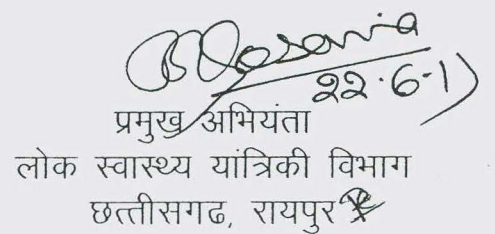 22.6.11
प्रमुख अभियंता
लोक स्वास्थ्य यांत्रिकी विभाग
छत्तीसगढ, रायपुर